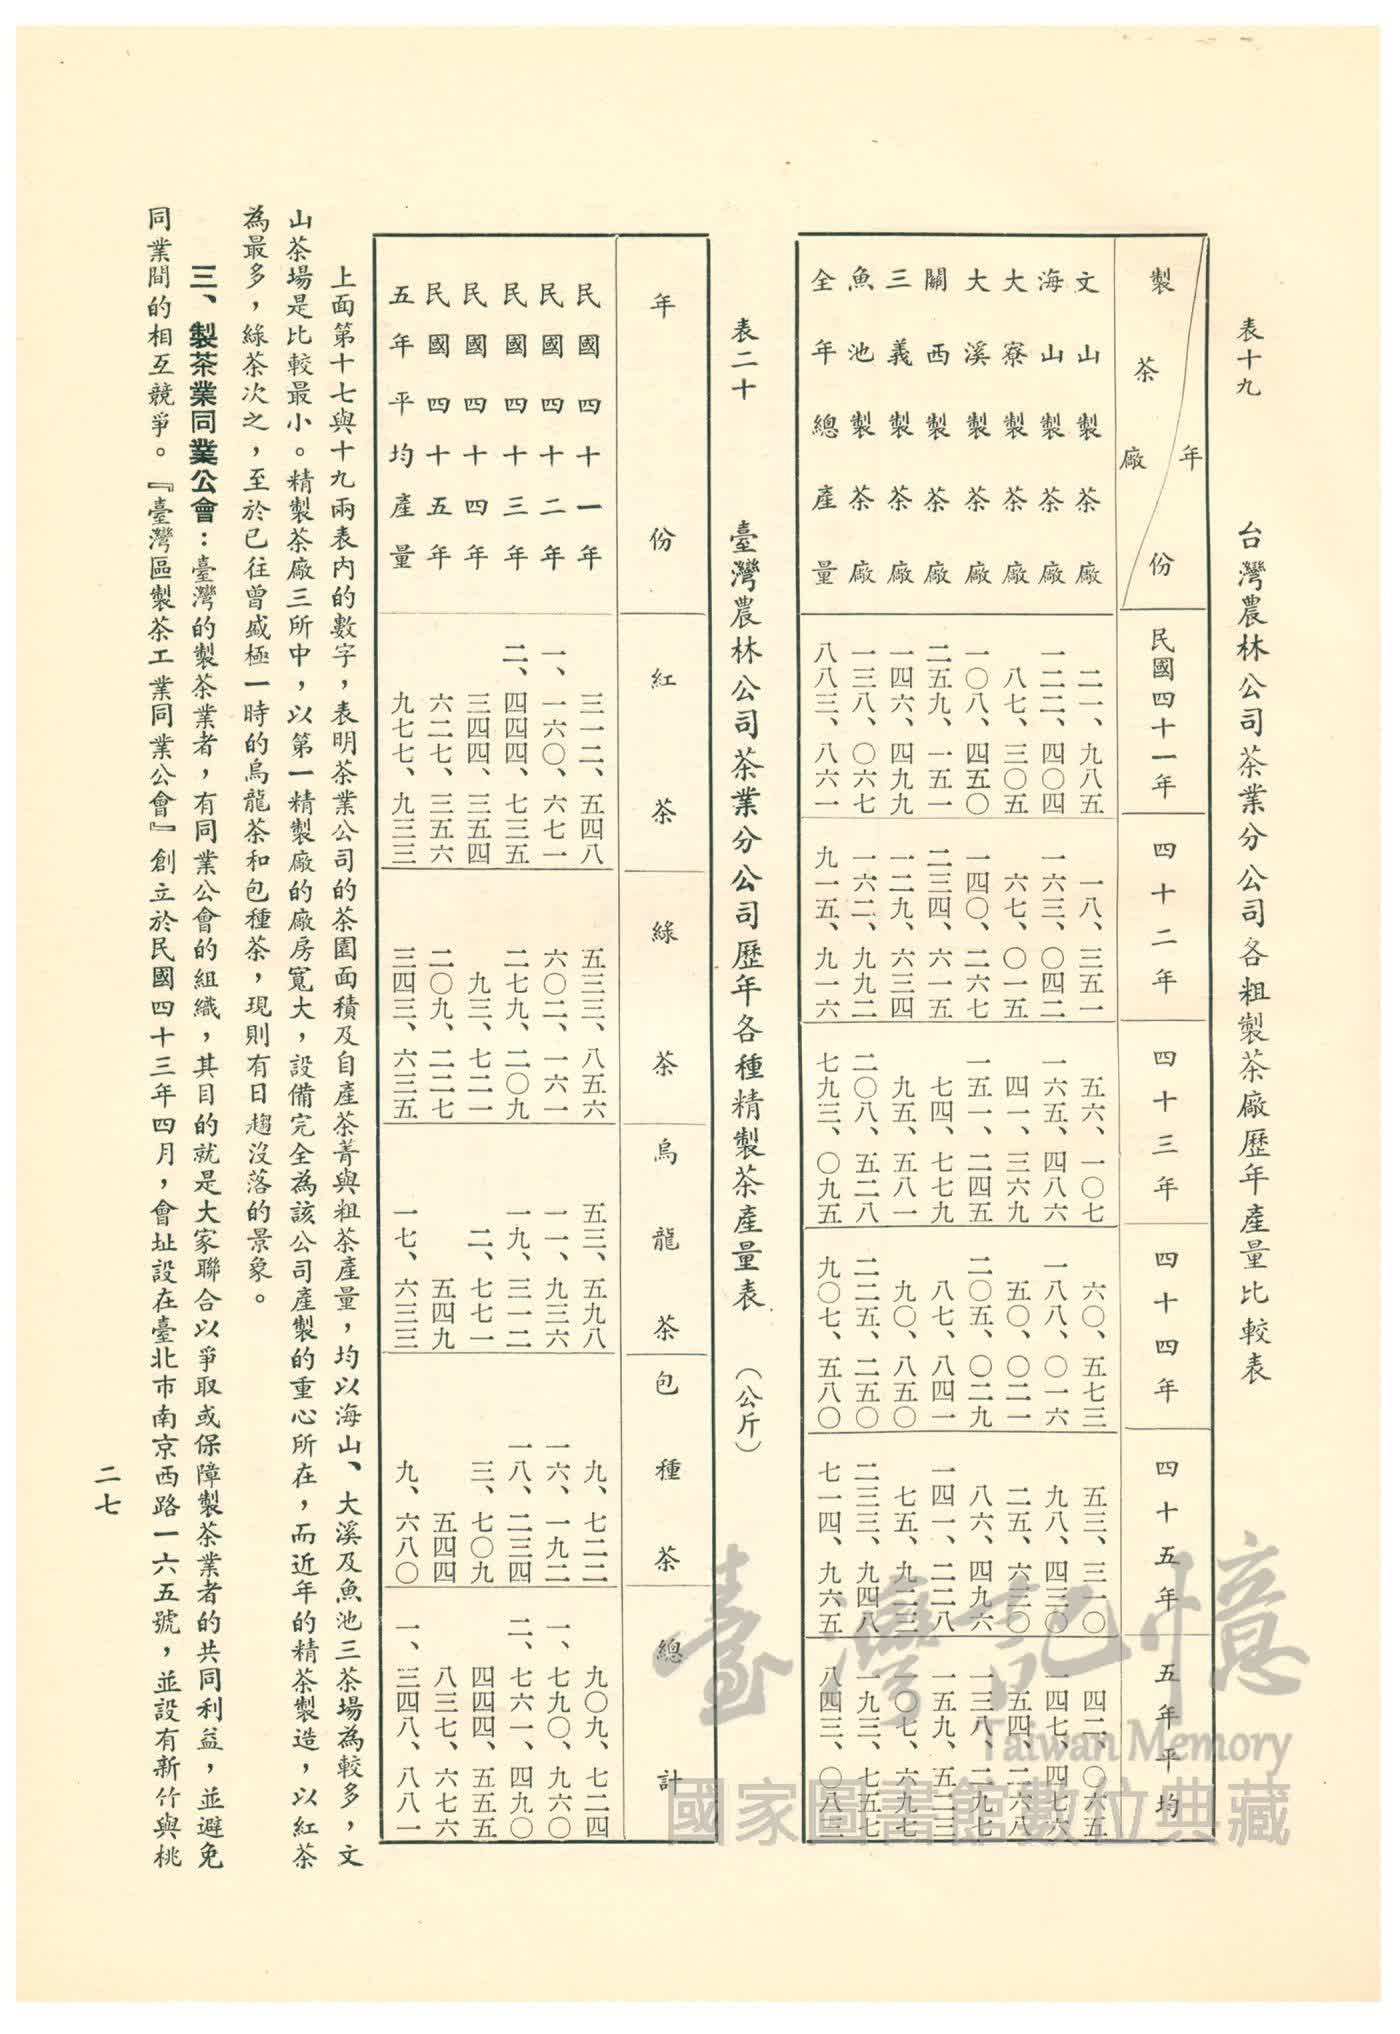 表十九　台灣農林公司茶業分公司各粗製茶廠歷年產量比較表
製茶廠　年份　民國四十一年　四十二年　四十三年　四十四年　四十五年　五年平均
文山製茶廠　二一、九八五　一八、三五一　五六、一〇七　六〇、五七三　五三、三一〇　四二、〇六五
海山製茶廠　一二二、四〇四　一六三、〇四二　一六五、四八六　一八八、〇一六　九八、四三〇　一四七、四七六
大寮製茶廠　八七、三〇五　六七、〇一五　四一、三六九　五〇、〇二一　二五、六三〇　五四、二六八
大溪製茶廠　一〇八、四五〇　一四〇、二六七　一五一、二四五　二〇五、〇二九　八六、四九六　一三八、二九七
關西製茶廠　二五九、一五一　二三四、六一五　七四、七七九　八七、八四一　一四一、二二八　一五九、五二三
三義製茶廠　一四六、四九九　一二九、六三四　九五、五八一　九〇、八五〇　七五、九二三　一〇七、六九七
魚池製茶廠　一三八、〇六七　一六二、九九二　二〇八、五二八　二二五、二五〇　二三三、九四八　一九三、七五七
全年總產量　八八三、八六一　九一五、九一六　七九三、〇九五　九〇七、五八〇　七一四、九六五　八四三、〇八三
表二十　臺灣農林公司茶業分公司歷年各種精製茶產量表　（公斤）
年份　紅茶　綠茶　烏龍茶　包種茶　總計
民國四十一年　三一二、五四八　五三三、八五六　五三、五九八　九、七二二　九〇九、七二四
民國四十二年　一、一六〇、六七一　六〇二、一六一　一一、九三六　一六、一九二　一、七九〇、九六〇
民國四十三年　二、四四四、七三五　二七九、二〇九　一九、三一二　一八、二三四　二、七六一、四九〇
民國四十四年　三四四、三五四　九三、七二一　二、七七一　三、七〇九　四四四、五五五
民國四十五年　六二七、三五六　二〇九、二二七　五四九　五四四　八三七、六七六
五年平均產量　九七七、九三三　三四三、六三五　一七、六三三　九、六八〇　一、三四八、八八一
上面第十七與十九兩表內的數字，表明茶業公司的茶園面積及自產茶菁與粗茶產量，均以海山、大溪及魚池三茶場為較多，文
山茶場是比較最小。精製茶廠三所中，以第一精製廠的廠房寬大，設備完全為該公司產製的重心所在，而近年的精茶製造，以紅茶
為最多，綠茶次之，至於已往曾盛極一時的烏龍茶和包種茶，現則有日趨沒落的景象。
三、製茶業同業公會：臺灣的製茶業者，有同業公會的組織，其目的就是大家聯合以爭取或保障製茶業者的共同利益，並避免
同業間的相互競爭。『臺灣區製茶工業同業公會』創立於民國四十三年四月，會址設在臺北市南京西路一六五號，並設有新竹與桃
二七
臺灣記憶
Taiwan Memory
國家圖書館數位典藏